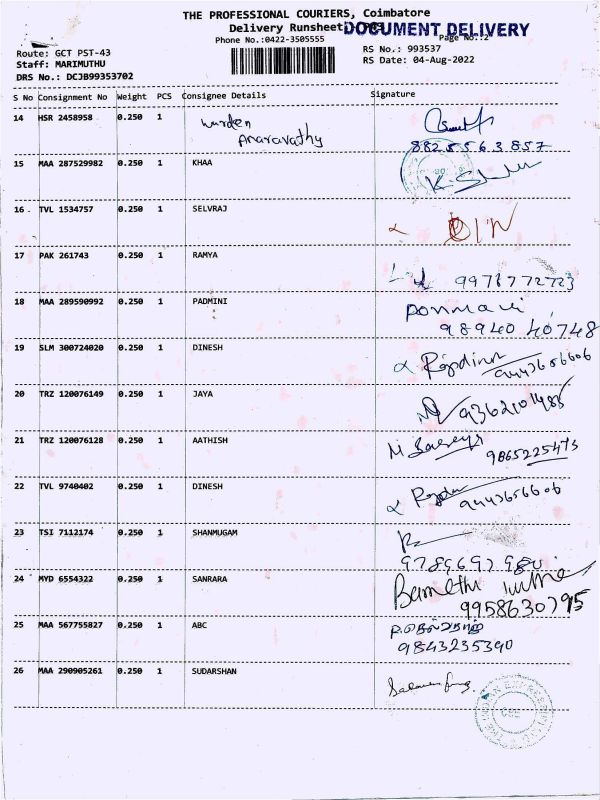 THE PROFESSIONAL COURIERS, Coimbatore
Delivery Runsheet
DOCUMENT DELIVERY
Phone No.:0422-3505555
Page No.:2
Route: GCT PST-43
Staff: MARIMUTHU
DRS No.: DCJB99353702
RS No.: 993537
RS Date: 04-Aug-2022
S No Consignment No Weight PCS Consignee Details Signature
14 HSR 2458958 0.250 1 Warden
Amaravathy
8825563857
15 MAA 287529982 0.250 1 KHAA
16 TVL 1534757 0.250 1 SELVRAJ
17 PAK 261743 0.250 1 RAMYA
9976772723
18 MAA 289590992 0.250 1 PADMINI
Ponmani
98940 40748
19 SLM 300724020 0.250 1 DINESH
9443656606
20 TRZ 120076149 0.250 1 JAYA
21 TRZ 120076128 0.250 1 AATHISH
9865225473
22 TVL 9740402 0.250 1 DINESH
9443656606
23 TSI 7112174 0.250 1 SHANMUGAM
24 MYD 6554322 0.250 1 SANRARA
9958630795
25 MAA 567755827 0.250 1 ABC
9843235390
26 MAA 290905261 0.250 1 SUDARSHAN